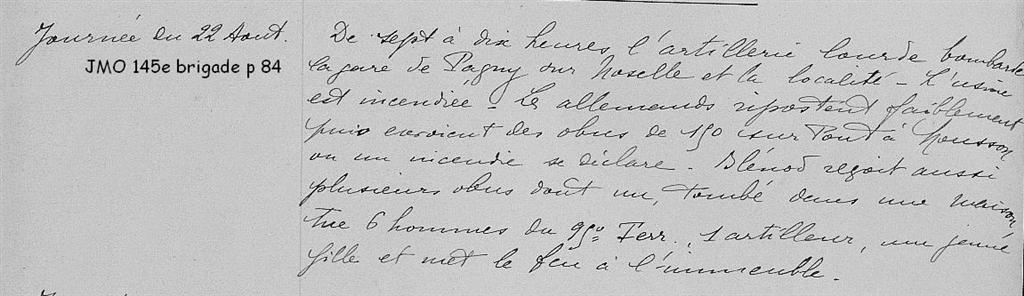 Journée du 22 Aout.
JMO 145e brigade p 84
De sept à dix heures, l'artillerie lourde bombarde
la gare de Pagny sur Moselle et la localité - L'usine
est incendiée - Le allemands ripostent faiblement
puis envoient des obus de 150 sur Pont à Mousson
ou un incendie se déclare. Blénod reçoit aussi
plusieurs obus dont un, tombé dans une maison
tue 6 hommes du 95e Terr., 1 artilleur, une jeune
fille et met le feu à l'immeuble.